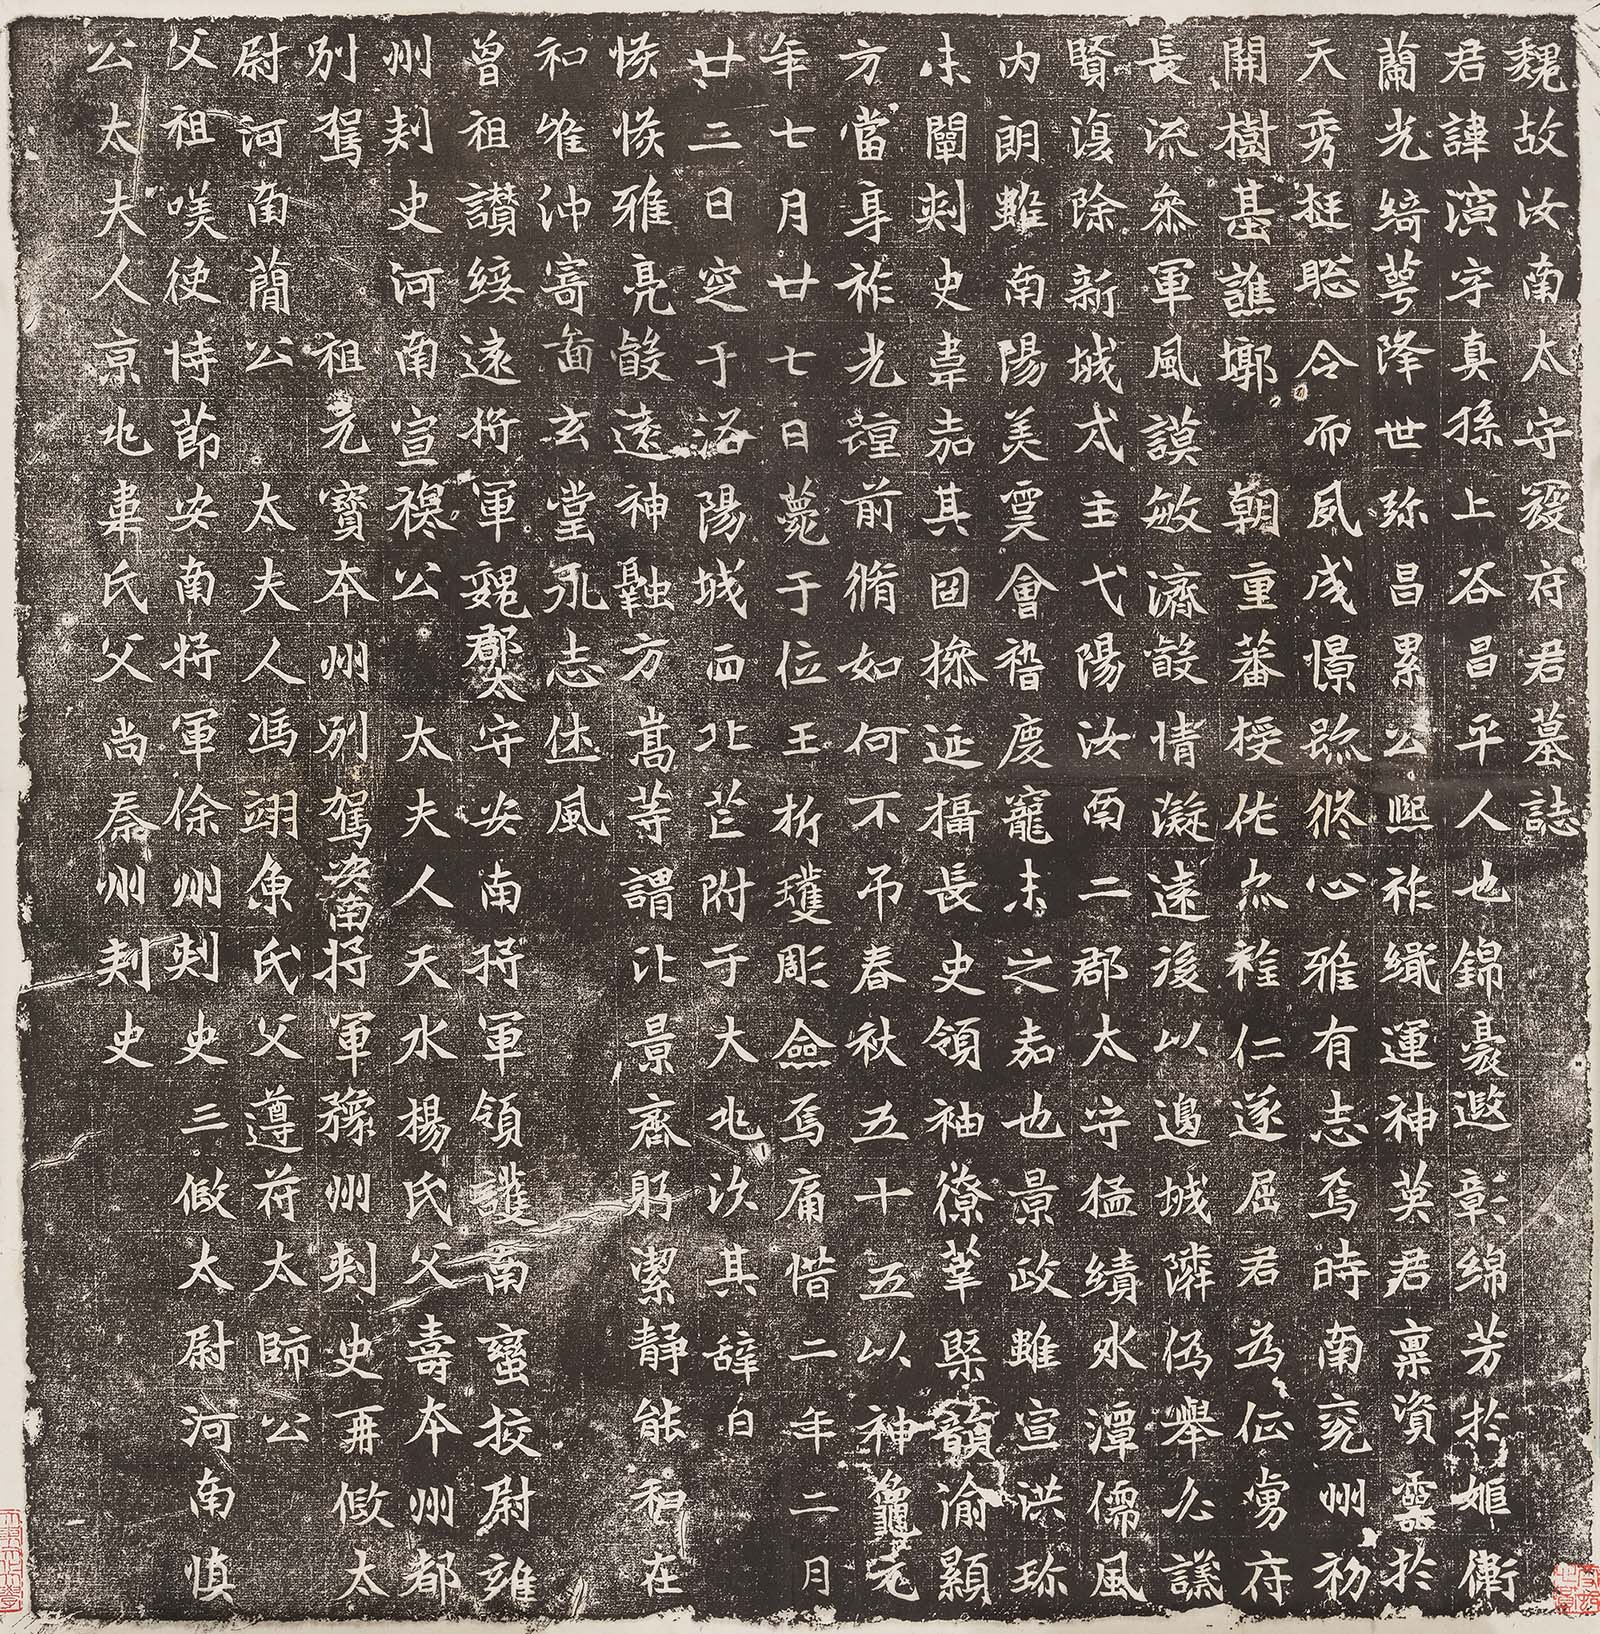 魏故汝南太守寇府君墓誌
君諱演字真孫上谷昌平人也錦裘遐彰綿芳於姬衛
蘭光綺萼降世弥昌累公熙祚繼運神英君稟資靈於
天秀挺聡令而夙成憬踪脩心雅有志焉時南兖州初
開樹基譙鄴朝重蕃授佐亦稚仁遂屈君為征虜府
長流叅軍風謨敏濟䯨情凝遠後以邊城隣偽舉尒謙
賢復除新城弍主弋陽汝南二郡太守猛績水潭儒風
内朗雖南陽美寞會稽慶寵未之嘉也景政雖宣洪珎
未闡刺史韋嘉其固操延攝長史領袖僚莘槩韻渝顯
方當身祚光蹱前脩如何不吊春秋五十五以神龜元
年七月廿七日薨于位玉折瓊彫僉焉痛惜二年二月
廿三日窆于洛陽城西北芒附于大兆次其辭曰
恢恢雅亮䯨遠神融方嵩等謂比景齊躬潔静能和在
和唯沖寄啚玄堂永志休風
曾祖讚綏遠將軍魏郡太守安南將軍領護南蠻挍尉雍
州刺史河南宣穆公太夫人天水楊氏父壽本州都
別駕祖元寶本州別駕安南將軍豫州刺史再假太
尉河南簡公太夫人馮翊魚氏父遵苻太師公
父祖嘆使持節安南將軍徐州刺史三假太尉河南慎
公太夫人京兆韋氏父尚秦州刺史